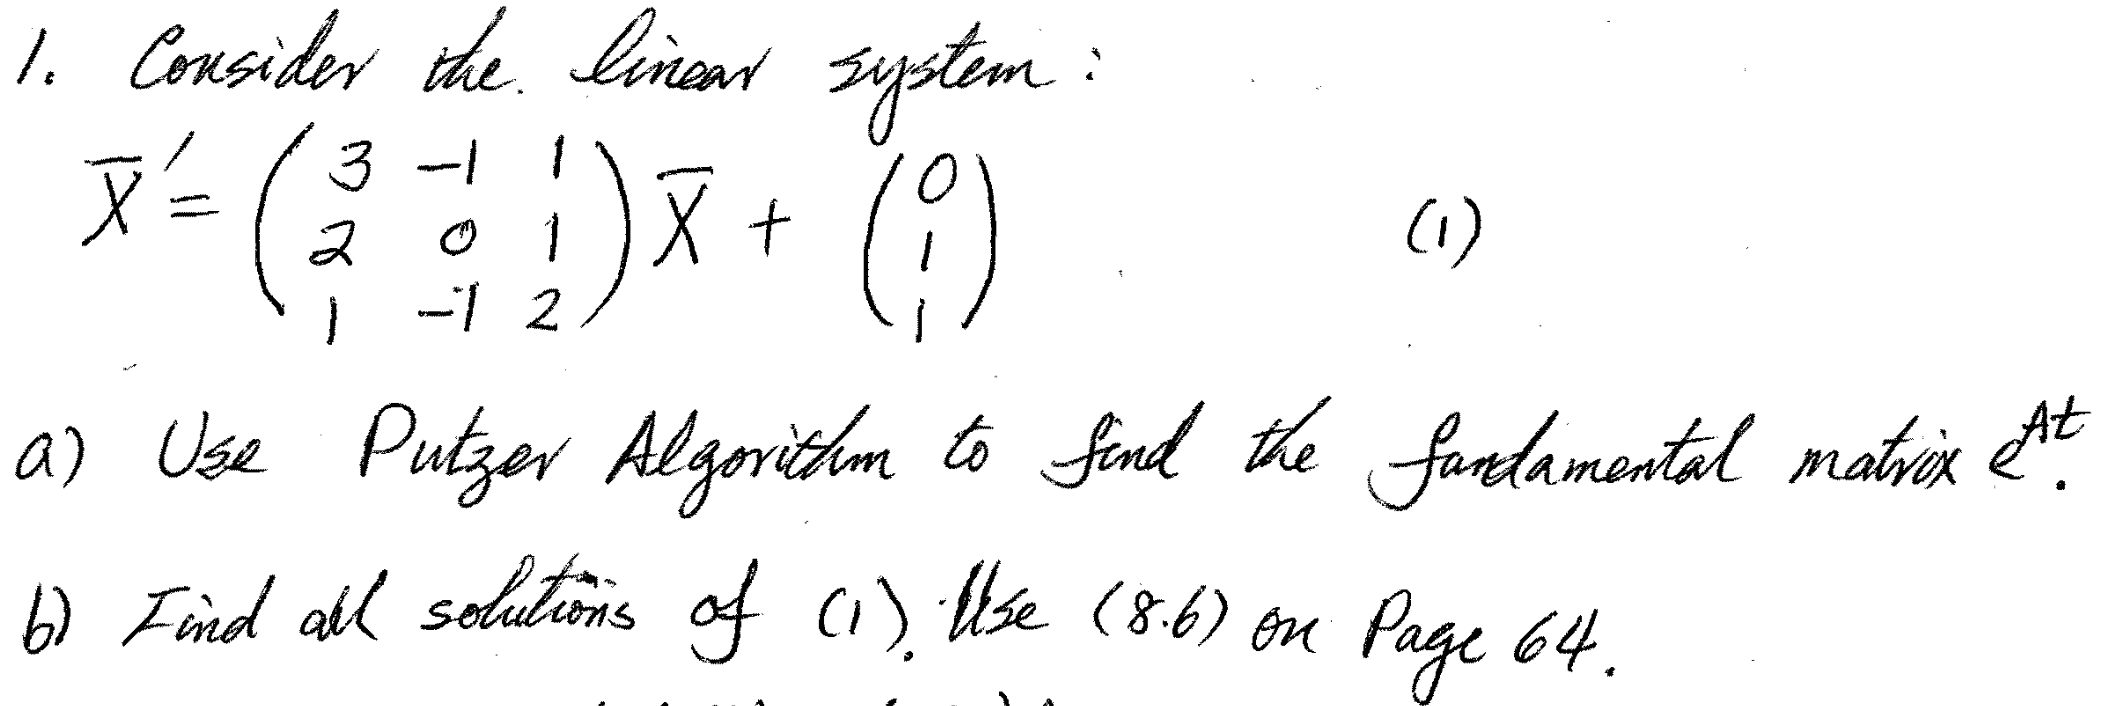 1. Consider the linear system:
X̄' = ( 3 -1 1 ) X̄ + ( 0 )
( 2 0 1 ) ( 1 ) (1)
( 1 -1 2 ) ( 1 )
a) Use Putzer Algorithm to find the fundamental matrix e^{At}.
b) Find all solutions of (1). Use (8.6) on Page 64.